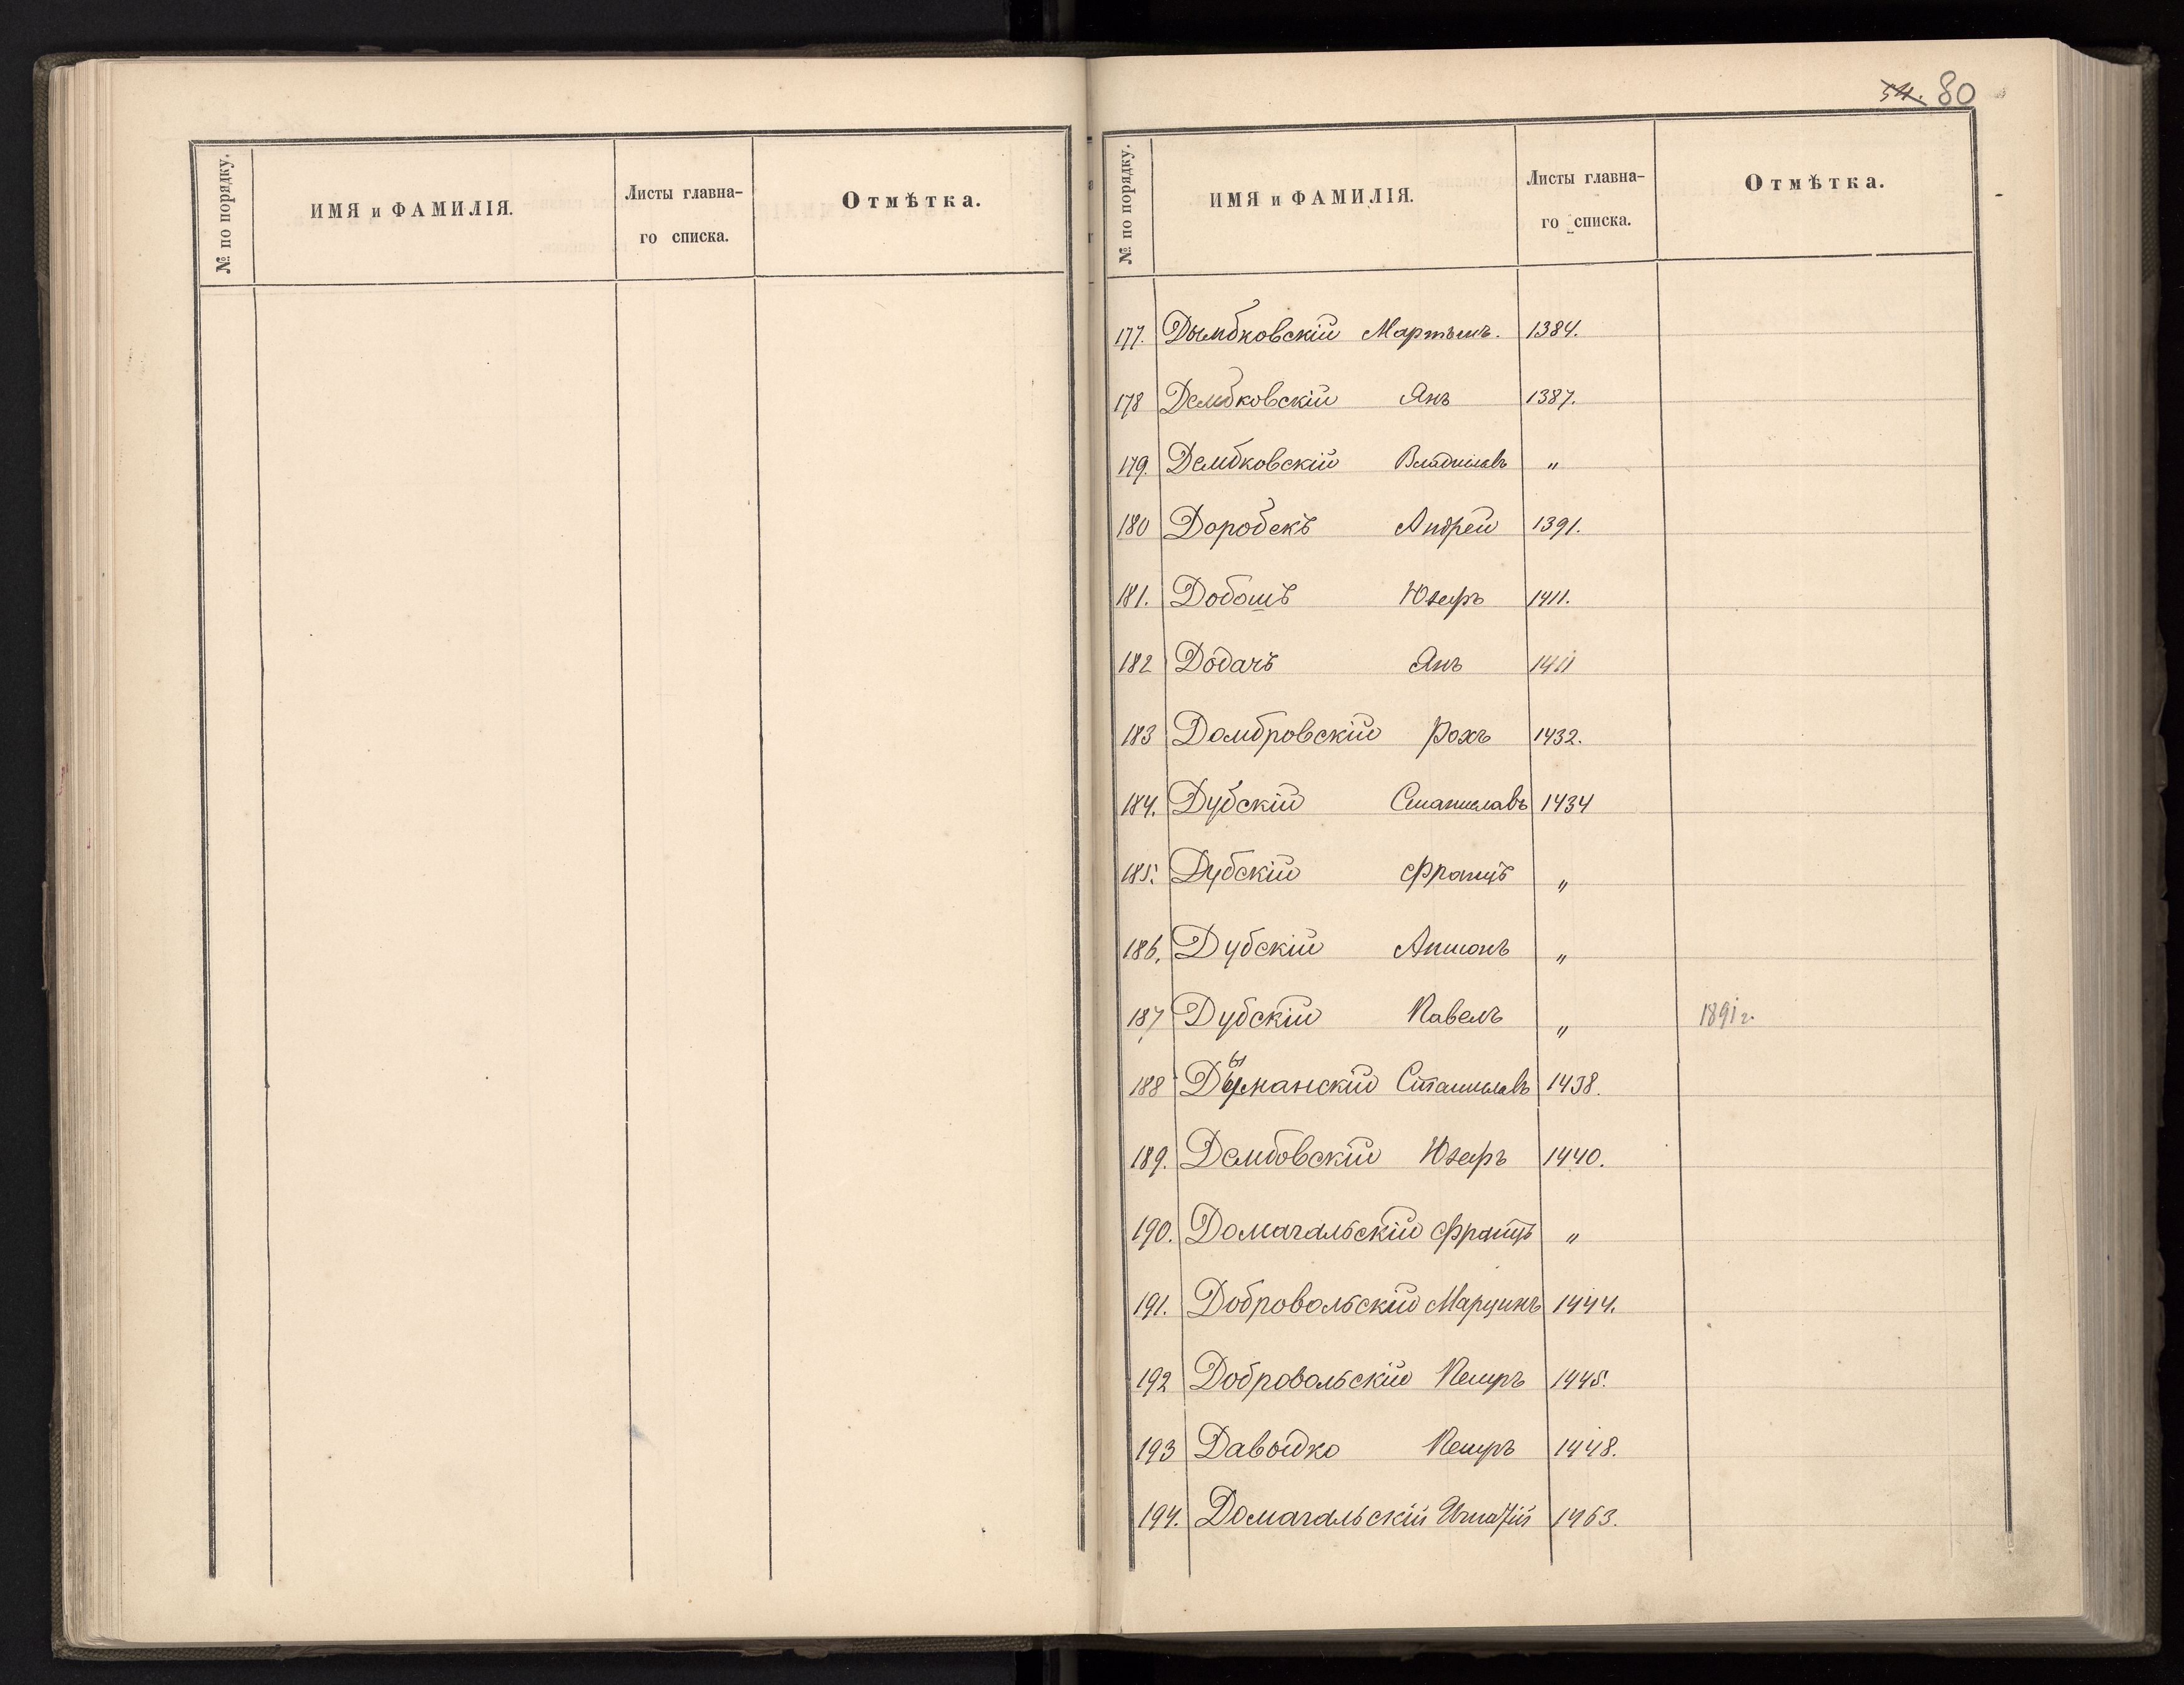 № по порядку.
ИМЯ и ФАМИЛІЯ.
Листы главна-
го списка.
Отмѣтка.
54. 80
№ по порядку.
ИМЯ и ФАМИЛІЯ.
Листы главна-
го списка.
Отмѣтка.
177. Дымбковскій Мартынъ. 1384.
178 Дембковскій Янъ 1387.
179. Дембковскій Владиславъ "
180 Доробекъ Андрей 1391.
181. Добошъ Юзефъ 1411.
182 Додачъ Янъ 1411
183 Домбровскій Рохъ 1432.
184. Дубскій Станиславъ 1434
185. Дубскій Францъ "
186. Дубскій Антонъ "
187 Дубскій Павелъ " 1891 г.
188 Дыманскій Станиславъ 1438.
189. Дембовскій Юзефъ 1440.
190. Домагальскій Францъ "
191. Добровольскій Марцинъ 1444.
192 Добровольскій Петръ 1445.
193 Давойдко Петръ 1448.
194. Домагальскій Игнатій 1463.